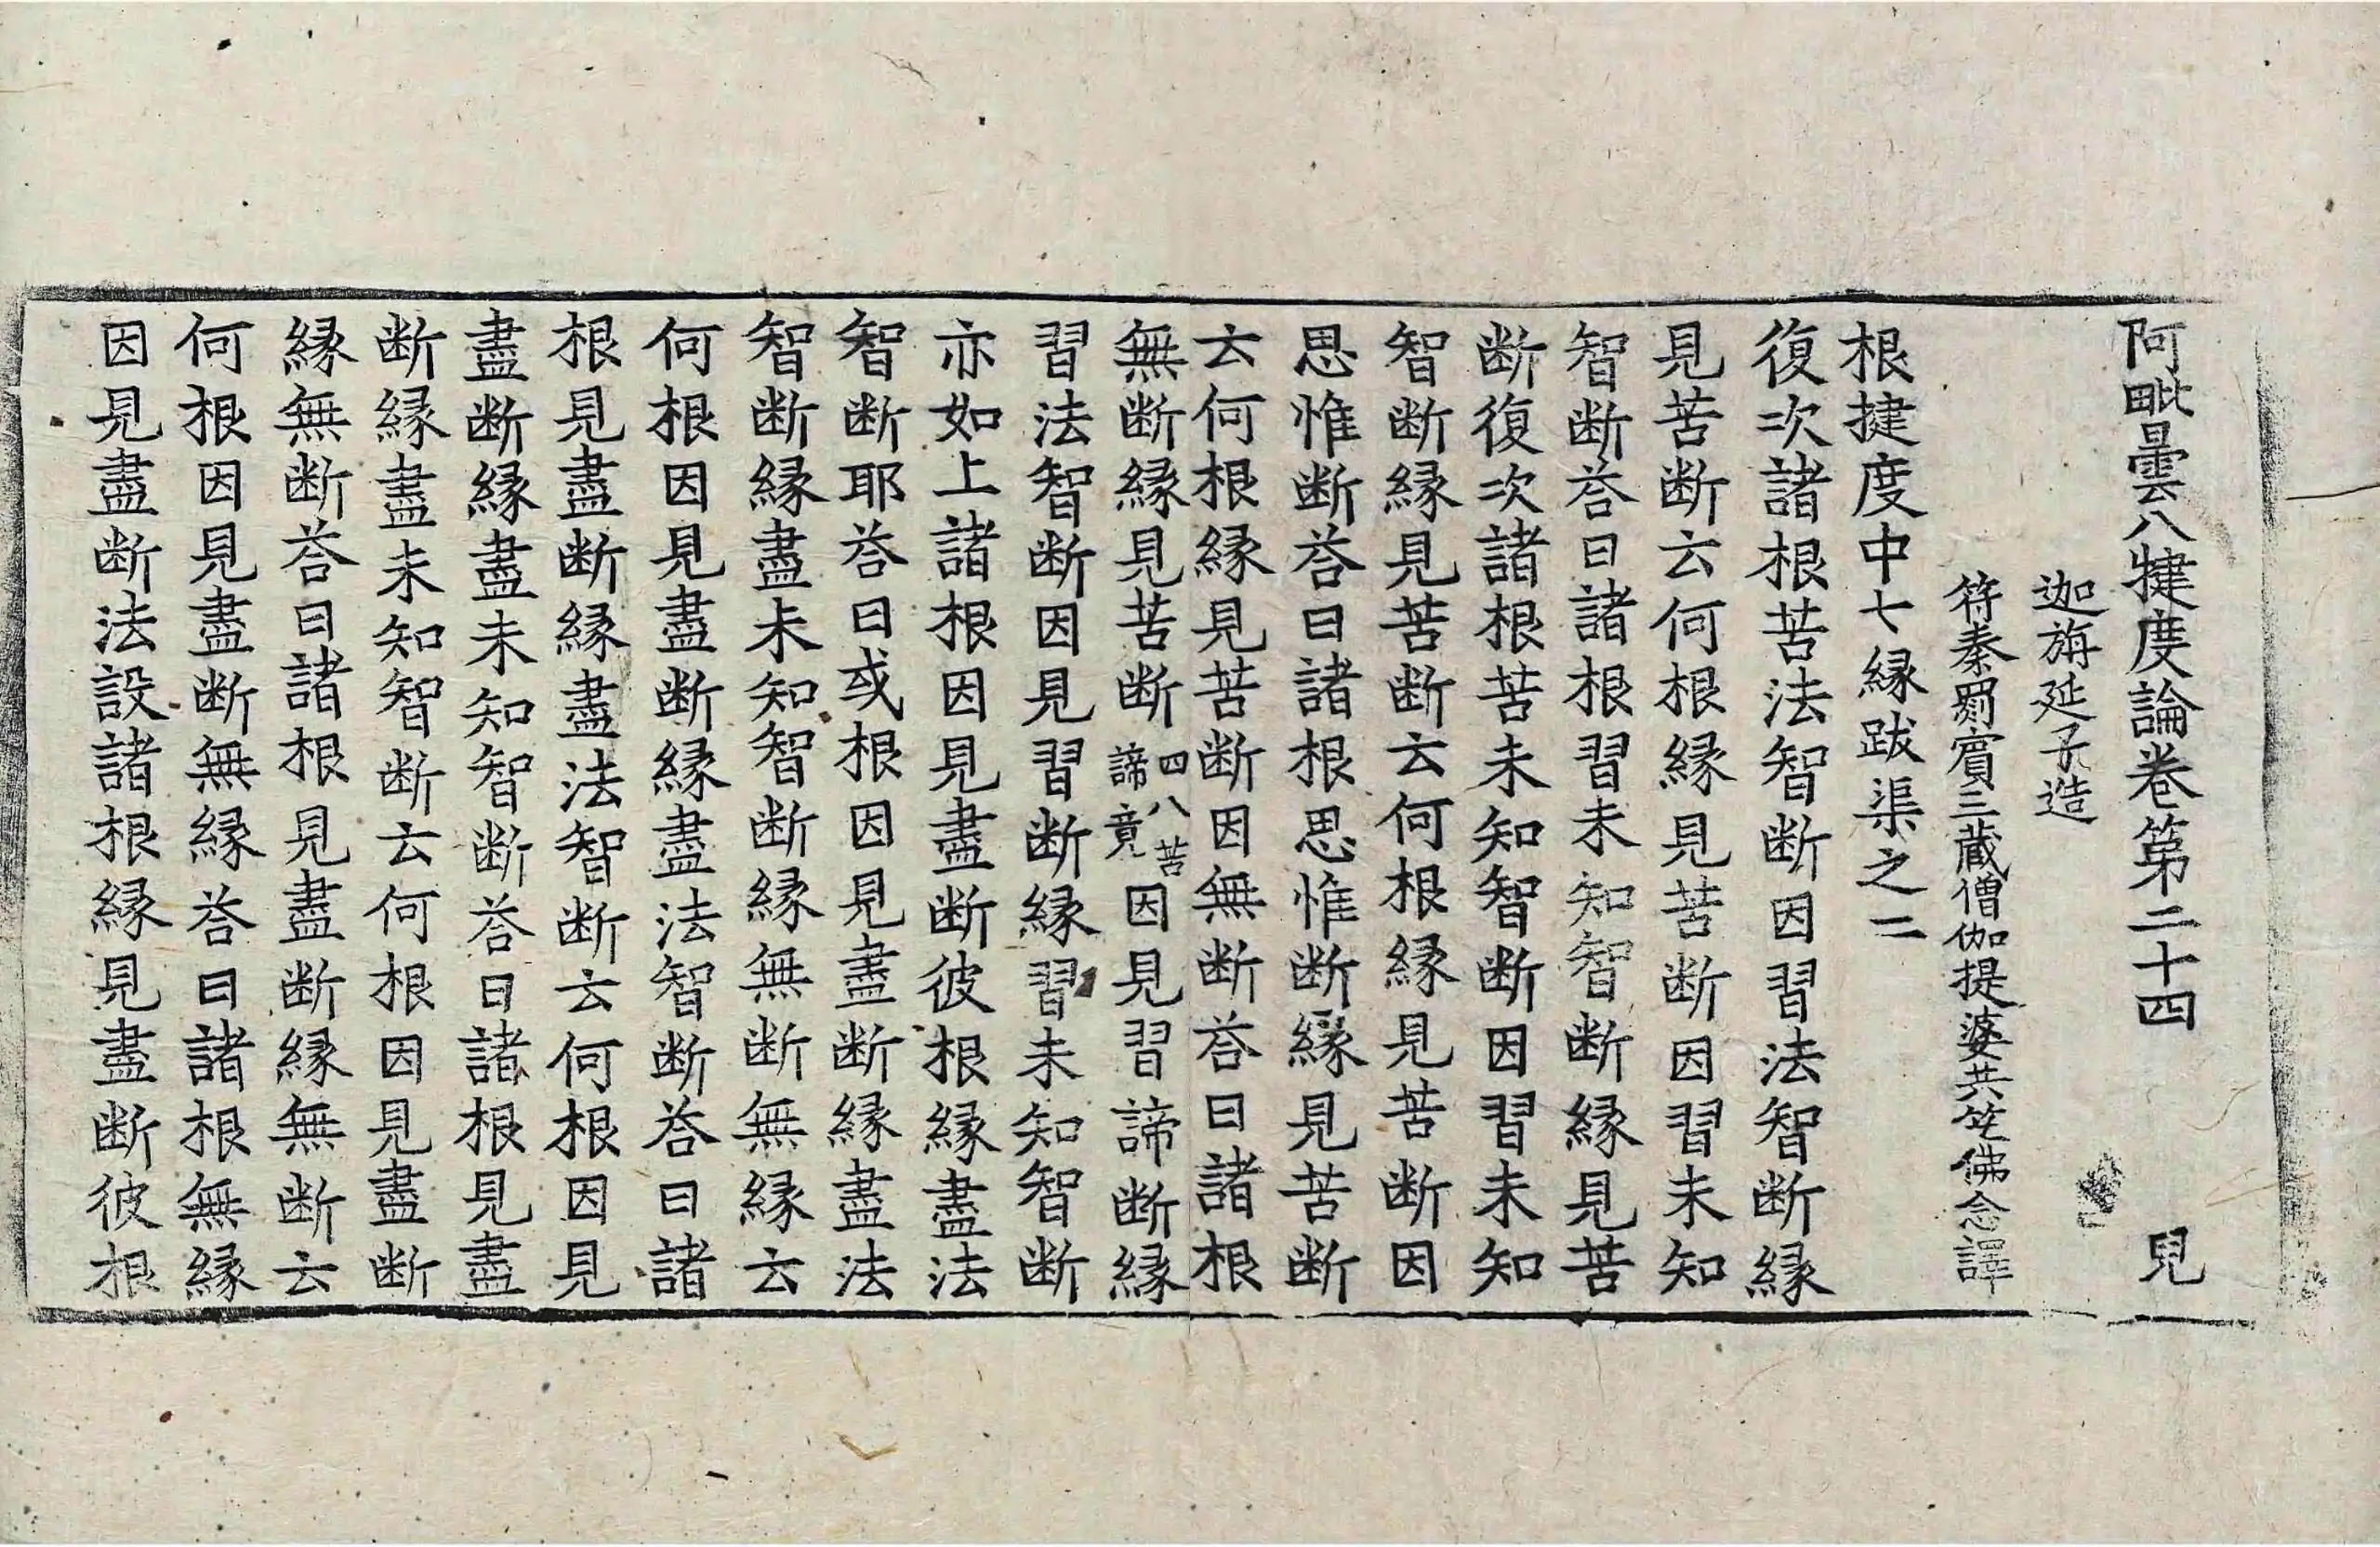 阿毗曇八犍度論卷第二十四　兒
迦旃延子造
符秦罽賓三藏僧伽提婆共竺佛念譯
根揵度中七緣跋渠之二
復次諸根苦法智断因習法智断緣
見苦断云何根緣見苦断因習未知
智断荅曰諸根習未知智断緣見苦
断復次諸根苦未知智断因習未知
智断緣見苦断云何根緣見苦断因
思惟断荅曰諸根思惟断緣見苦断
云何根緣見苦断因無断荅曰諸根
無断緣見苦断四八苦諦竟因見習諦断緣
習法智断因見習断緣習未知智断
亦如上諸根因見盡断彼根緣盡法
智断耶荅曰或根因見盡断緣盡法
智断緣盡未知智断緣無断無緣云
何根因見盡断緣盡法智断荅曰諸
根見盡断緣盡法智断云何根因見
盡断緣盡未知智断荅曰諸根見盡
断緣盡未知智断云何根因見盡断
緣無断荅曰諸根見盡断緣無断云
何根因見盡断無緣荅曰諸根無緣
因見盡断法設諸根緣見盡断彼根